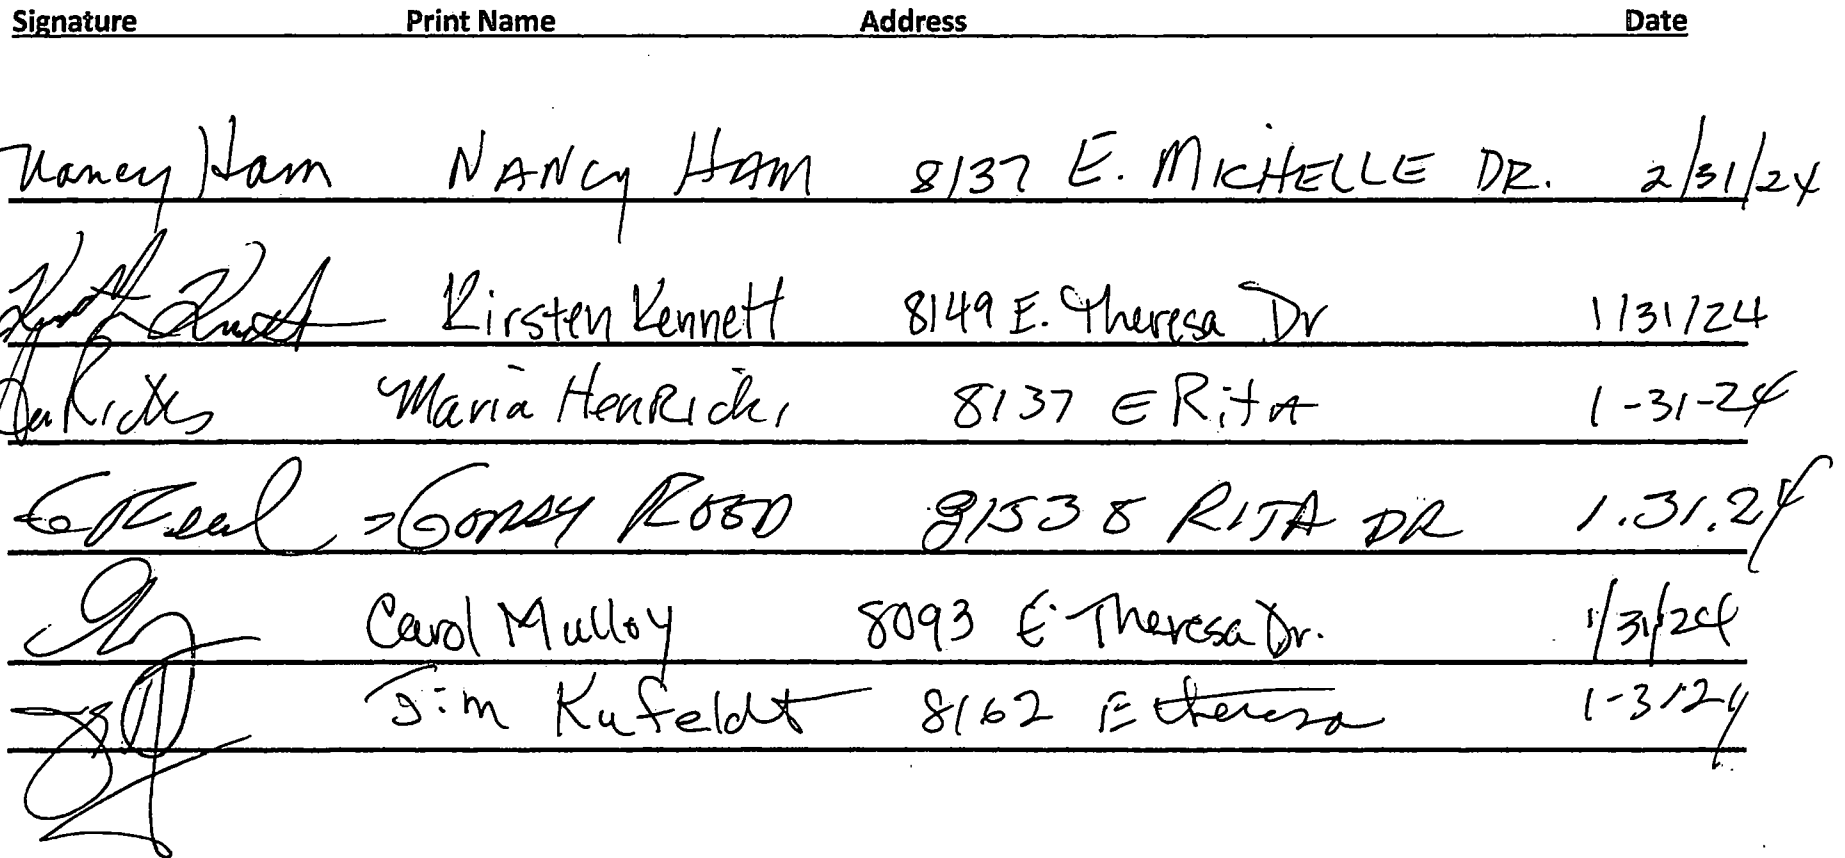 Signature Print Name Address Date
Nancy Ham NANCY HAM 8137 E. MICHELLE DR. 2/31/24
Kirsten Kennett 8149 E. Theresa Dr 1/31/24
Maria HenRicks 8137 E RitA 1-31-24
RITA DR 1.31.24
Carol Mulloy 8093 E Theresa Dr. 1/31/24
Jim Kufeldt 8162 E theresa 1-31-24